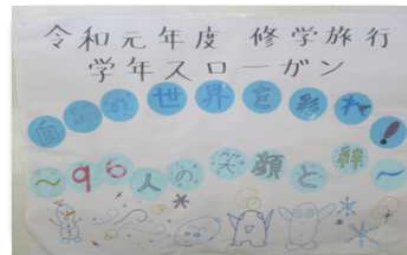 令和元年度 修学旅行
学年スローガン
白銀の世界を彩れ!
～96人の笑顔と絆～